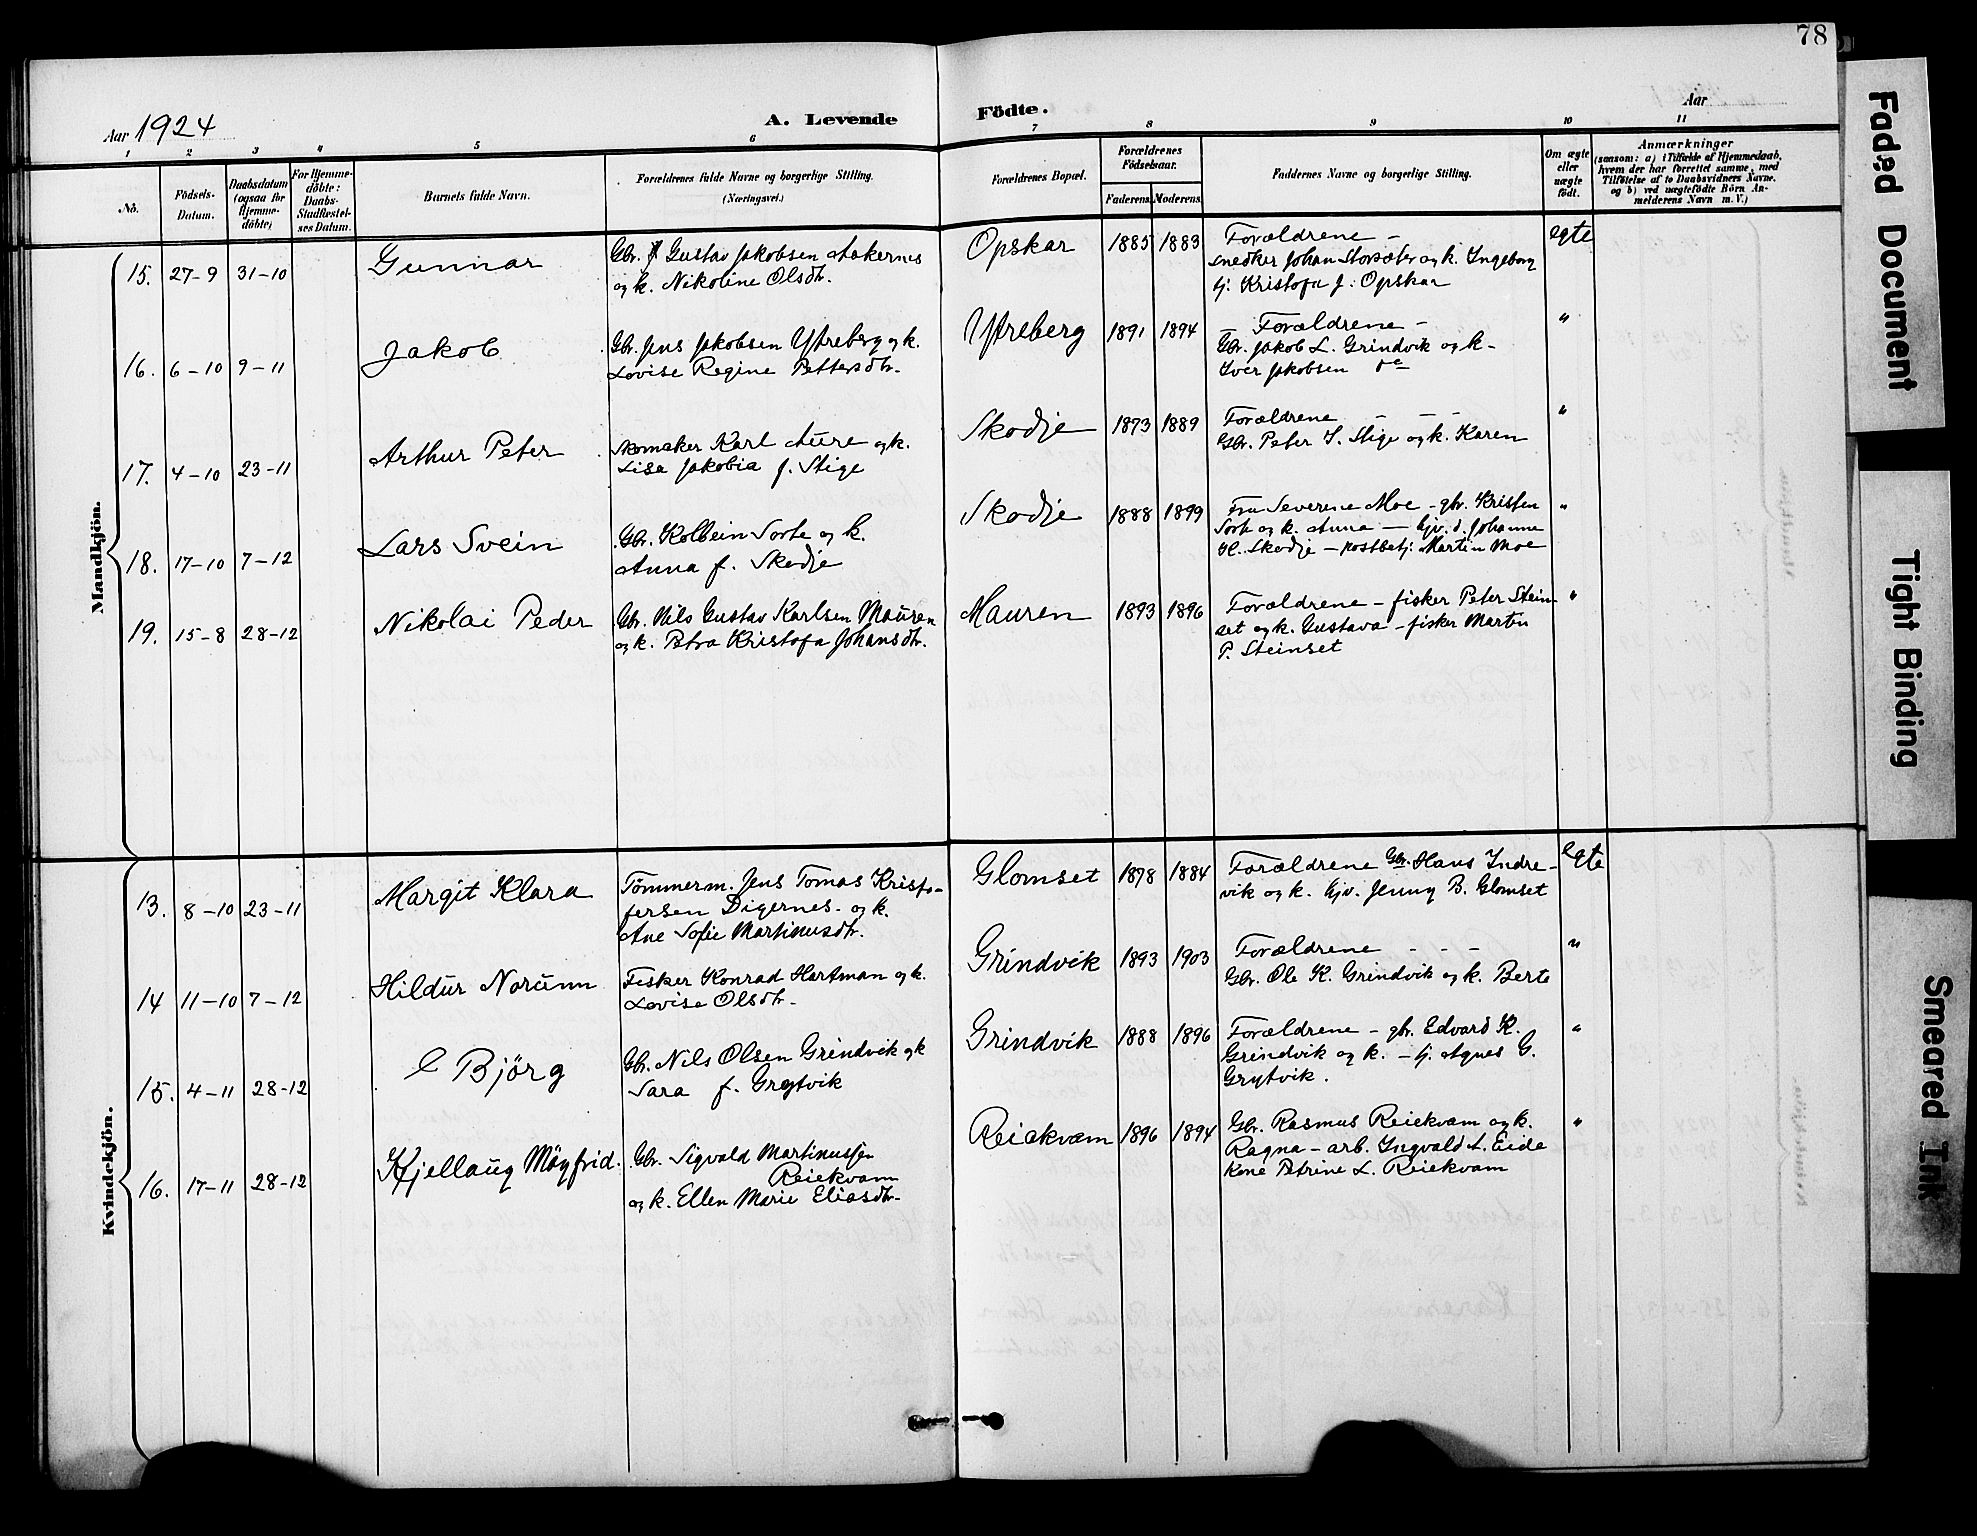 78
Aar 1924
A. Levende
Födte.
Aar
1 2 3 4 5 6 7 8 9 10 11
No.
Födsels-
Datum.
Daabsdatum
(ogsaa for
Hjemme-
döbte)
For Hjemme-
döbte:
Daabs-
Stadfæstel-
ses Datum.
Barnets fulde Navn.
Forældrenes fulde Navne og borgerlige Stilling.
(Næringsvei.)
Forældrenes Bopæl.
Forældrenes
Födselsaar.
Faderens Moderens
Faddernes Navne og borgerlige Stilling.
Om ægte
eller
uægte
födt.
Anmærkninger
(saasom: a) i Tilfælde af Hjemmedaab,
hvem der har forrettet samme, med
Tilföielse af to Daabsvidners Navne,
og b) ved uægtefödte Börn An-
melderens Navn m. V.)
Mandkjön.
15. 27-9 31-10 Gunnar
Gbr. Gustav Jakobsen Aakernes
og k. Nikoline Olsdtr.
Opskar 1885 1883
Forældrene -
snedker Johan Storsæter og k. Ingeborg
tj. Kristofa J: Opskar
egte
16. 6-10 9-11 Jakob
Gbr. Jens Jakobsen Ytreberg og k.
Lovise Regine Pettersdtr.
Ytreberg 1891 1894
- Forældrene -
Gbr. Jakob L. Grindvik og k-
Iver Jakobsen
"
17. 4-10 23-11 Arthur Peter
Skomaker Karl Aure og k.
Lisa Jakobia f. Stige
Skodje 1873 1889
Forældrene - - -
Gbr. Peter J. Stige og k. Karen
"
18. 17-10 7-12 Lars Svein
Gbr. Kolbein Sorte og k.
Anna f. Skodje
Skodje 1888 1899
Fru Severine Moe - gbr. Kristen
Sorte og k. Anna - hjv. d. Johanne
H. Skodje - postbetj: Martin Moe
"
19. 15-8 28-12 Nikolai Peder
Gbr. Nils Gustav Karlsen Mauren
og k. Petra Kristofa Johansdtr.
Mauren 1893 1896
Forældrene - fisker Peter Stein-
set og k. Gustava - fisker Martin
P. Steinset
"
Kvindekjön.
13. 8-10 23-11 Margit Klara
Tømmerm. Jens Tomas Kristo-
fersen Digernes. og k.
Ane Sofie Martinusdtr.
Glomset 1878 1884
Forældrene Gbr. Hans Indre-
vik og k. hjv. Jenny B. Glomset
egte
14 11-10 7-12 Hildur Norunn
Fisker Konrad Hartman og k.
Lovise Olsdtr-
Grindvik 1893 1903
Forældrene - - -
Gbr. Ole K. Grindvik og k. Berte
"
15. 4-11 28-12 Bjørg
Gbr. Nils Olsen Grindvik og k
Sara f. Grytvik
Grindvik 1888 1896
Forældrene - gbr. Edvard K.
Grindvik og k. - tj. Agnes G.
Grytvik.
"
16. 17-11 28-12 Kjellaug Møyfrid.
Gbr. Sigvald Martinussen
Reiekvam
og k. Ellen Marie Eliasdtr-
Reiekvam 1896 1894
Gbr. Rasmus Reiekvam og k.
Ragna - arb. Ingvald L. Eide
Kone Petrine L. Reiekvam
"
Faded Document
Tight Binding
Smeared Ink